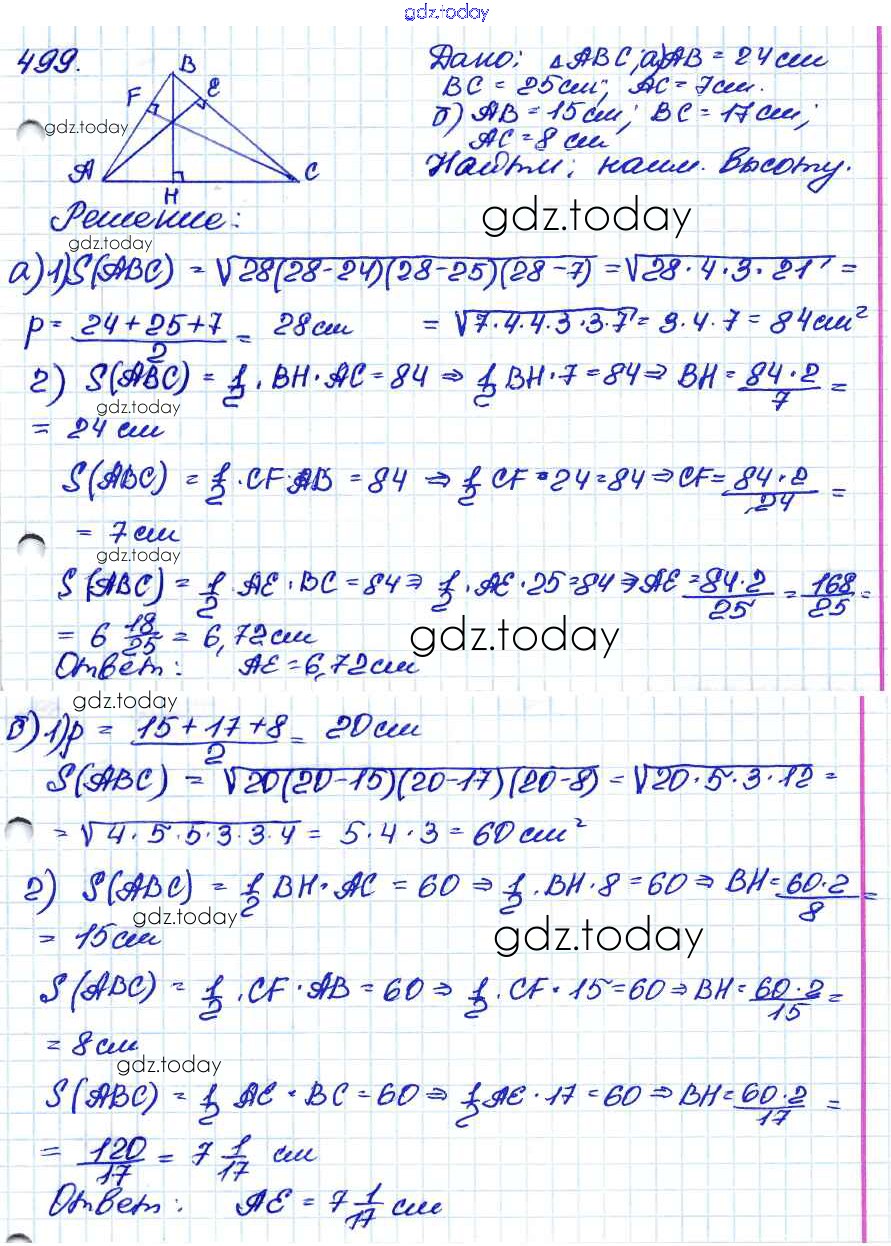 gdz.today
499.
B
F
E
gdz.today
A
H
C
Дано: △ABC, а) AB = 24 см
BC = 25 см; AC = 7 см.
б) AB = 15 см; BC = 17 см;
AC = 8 см
Найти: наим. высоту.
gdz.today
Решение:
gdz.today
а) 1) S(ABC) = √28(28-24)(28-25)(28-7) = √28·4·3·21 =
p = (24+25+7)/2 = 28 см = √7·4·4·3·3·7 = 3·4·7 = 84 см²
2) S(ABC) = 1/2 · BH · AC = 84 ⇒ 1/2 BH · 7 = 84 ⇒ BH = (84·2)/7 =
gdz.today
= 24 см
S(ABC) = 1/2 · CF · AB = 84 ⇒ 1/2 CF · 24 = 84 ⇒ CF = (84·2)/24 =
= 7 см
gdz.today
S(ABC) = 1/2 AE · BC = 84 ⇒ 1/2 · AE · 25 = 84 ⇒ AE = (84·2)/25 = 168/25 =
= 6 18/25 = 6,72 см
gdz.today
Ответ: AE = 6,72 см
gdz.today
б) 1) p = (15+17+8)/2 = 20 см
S(ABC) = √20(20-15)(20-17)(20-8) = √20·5·3·12 =
= √4·5·5·3·3·4 = 5·4·3 = 60 см²
2) S(ABC) = 1/2 BH · AC = 60 ⇒ 1/2 · BH · 8 = 60 ⇒ BH = (60·2)/8 =
gdz.today
= 15 см
gdz.today
S(ABC) = 1/2 · CF · AB = 60 ⇒ 1/2 · CF · 15 = 60 ⇒ BH = (60·2)/15 =
= 8 см
gdz.today
S(ABC) = 1/2 AE · BC = 60 ⇒ 1/2 AE · 17 = 60 ⇒ BH = (60·2)/17 =
= 120/17 = 7 1/17 см
Ответ: AE = 7 1/17 см